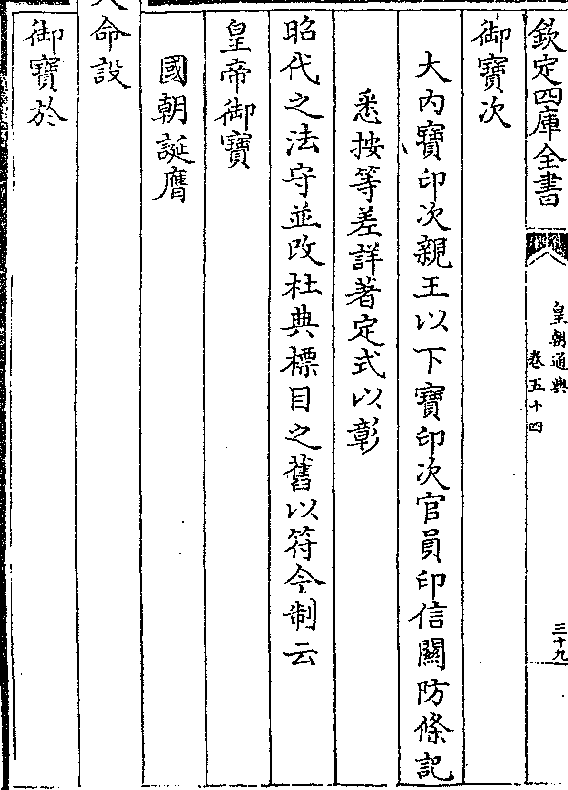 欽定四庫全書
皇朝通典
卷五十四
三十九
御寶次
大內寶印次親王以下寶印次官員印信關防條記
悉按等差詳著定式以彰
昭代之法守並改杜典標目之舊以符令制云
皇帝御寶
國朝誕膺
命設
御寶於